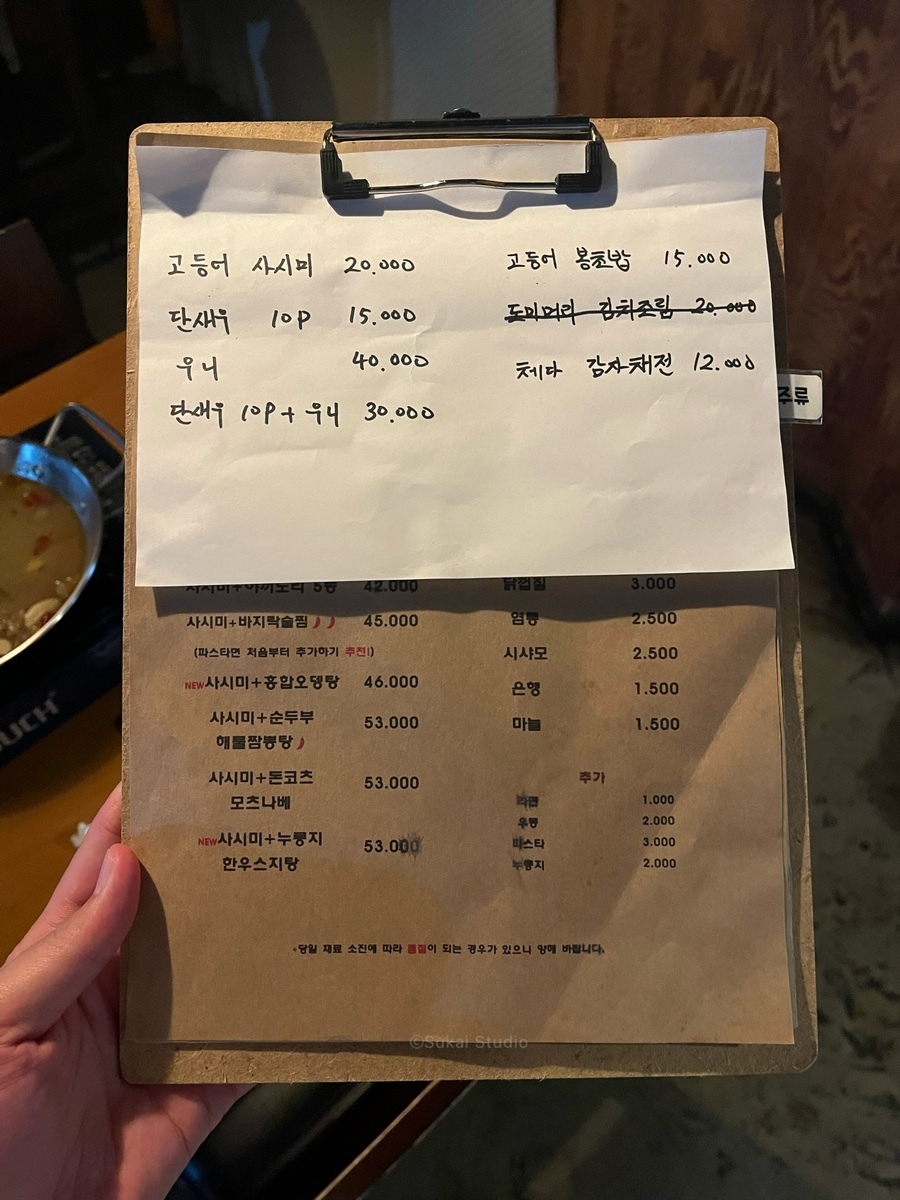 고등어 사시미 20.000
단새우 10P 15.000
우니 40.000
단새우 10P + 우니 30.000
고등어 봉초밥 15.000
도미머리 김치조림 20.000
체다 감자채전 12.000
주류
사시미+야끼도리 5종 42.000
사시미+바지락술찜 45.000
(파스타면 처음부터 추가하기 추천!)
NEW 사시미+홍합오뎅탕 46.000
사시미+순두부 53.000
해물짬뽕탕
사시미+돈코츠 53.000
모츠나베
NEW 사시미+누룽지 53.000
한우스지탕
닭껍질 3.000
염통 2.500
시샤모 2.500
은행 1.500
마늘 1.500
추가
라면 1.000
우동 2.000
파스타 3.000
누룽지 2.000
*당일 재료 소진에 따라 품절이 되는 경우가 있으니 양해 바랍니다.
OUCH
©Sukai Studio